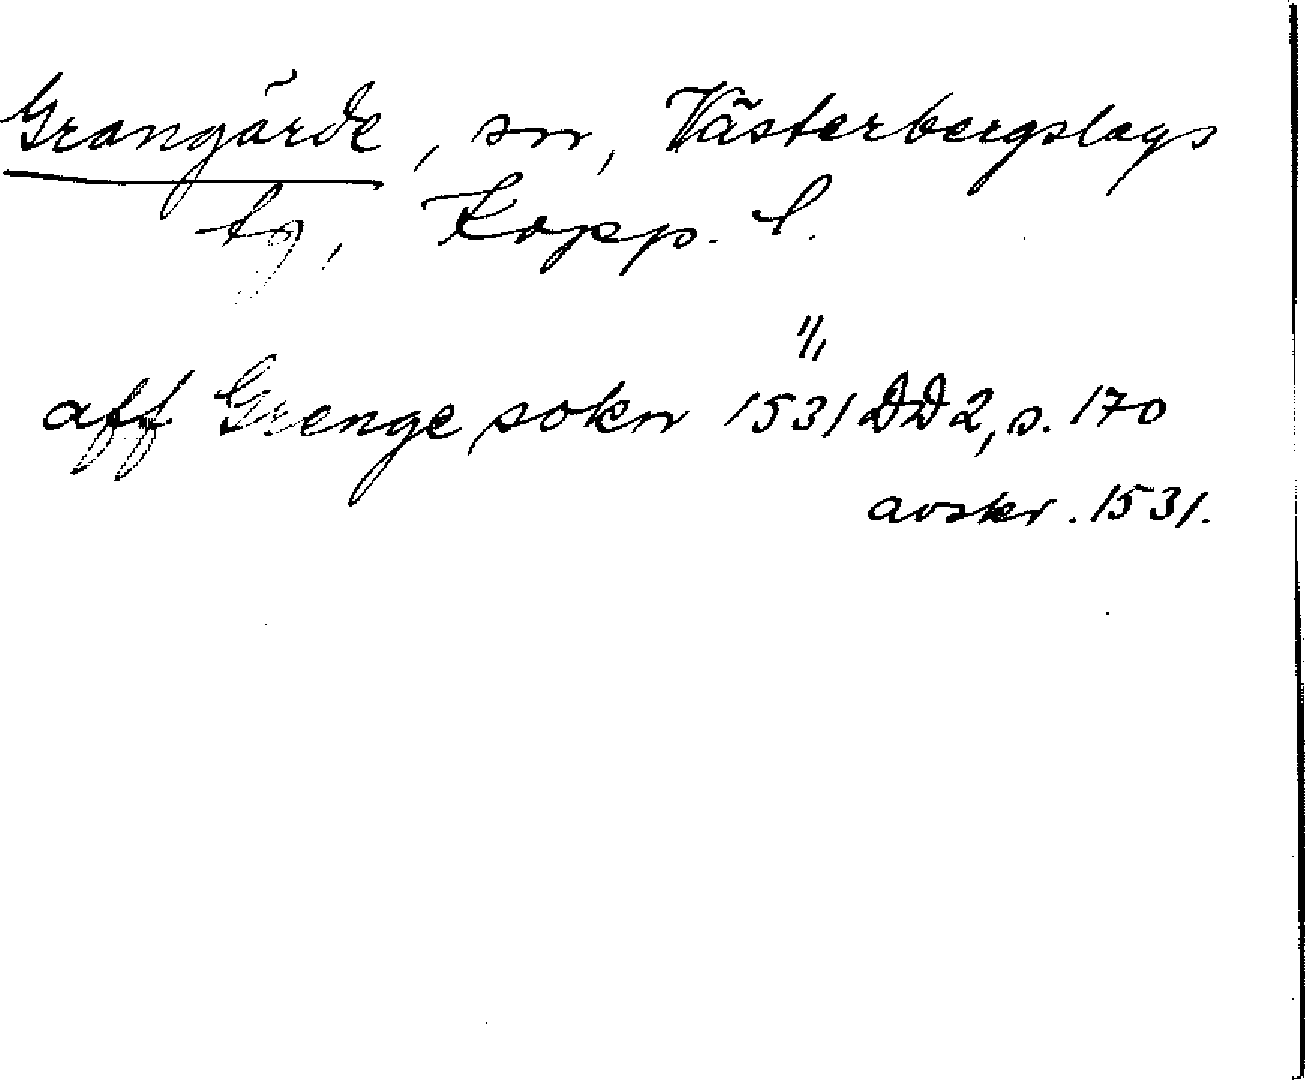 Grangärde, sn, Västerbergslags
tg, Kopp. l.
aff Grenge sokn 1531 DD2, s. 170
avskr. 1531.